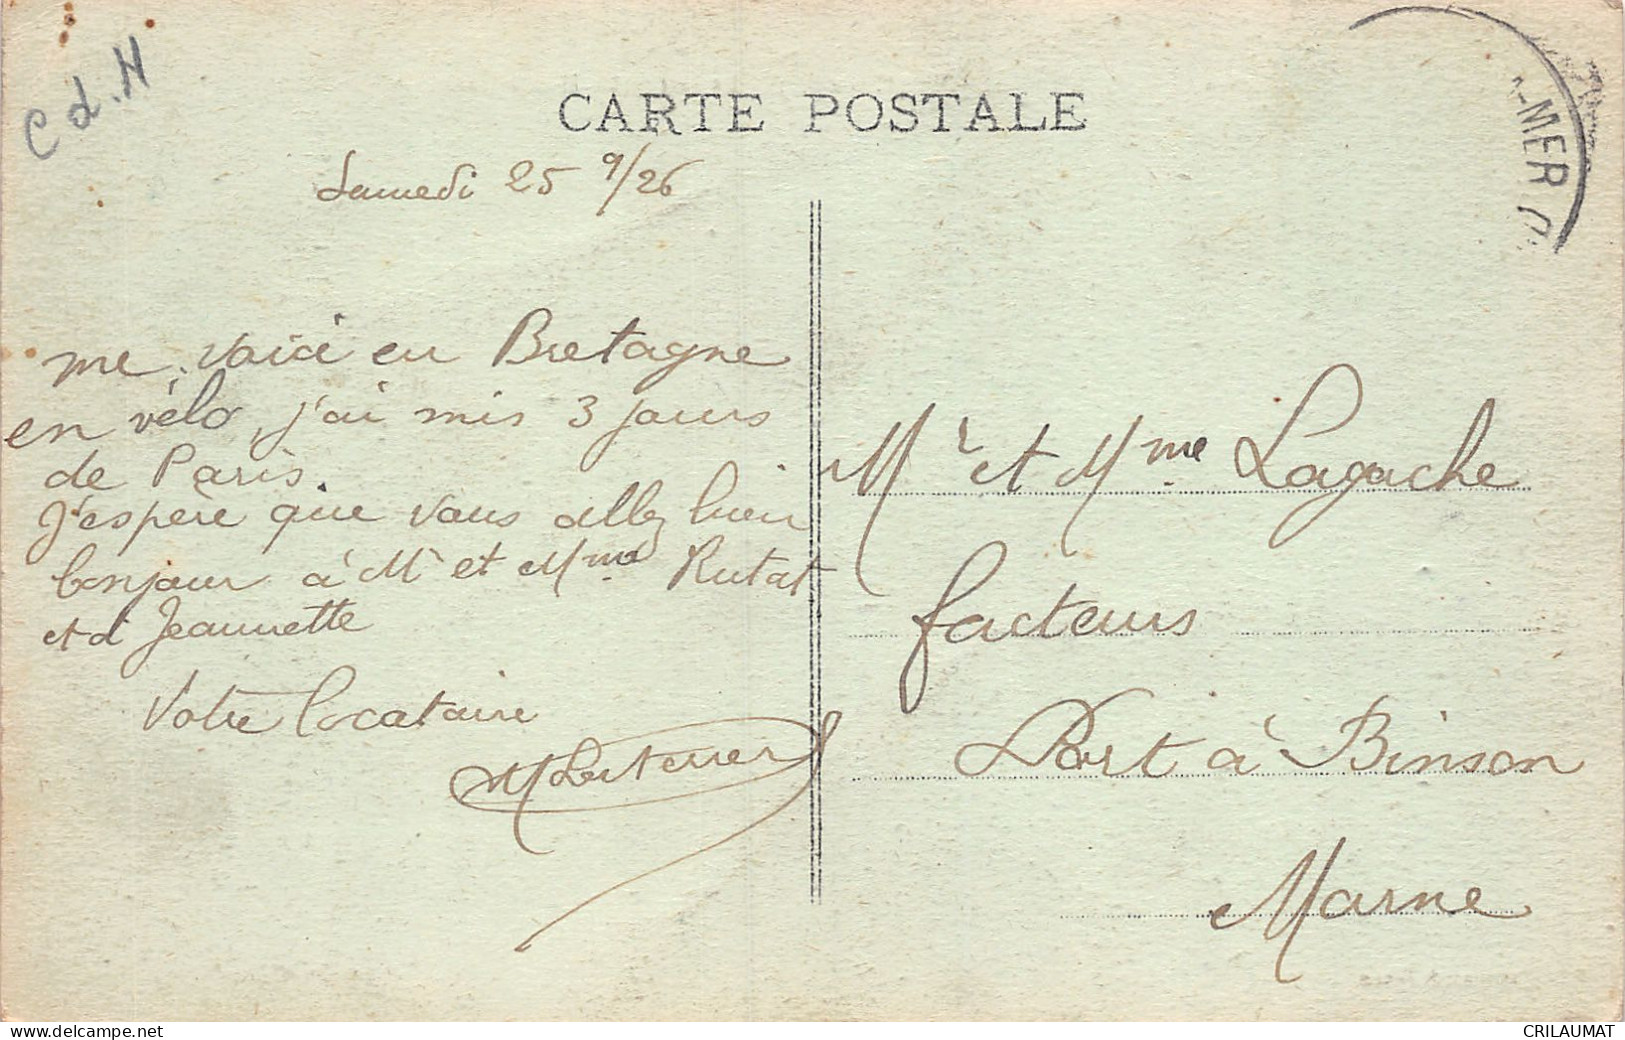 C d. N
CARTE POSTALE
-MER
Samedi 25 9/26
me voici en Bretagne
en vélo, j'ai mis 3 jours
de Paris.
J'espère que vous allez bien
bonjour à Mr et Mme Rutat
et à Jeannette
Votre locataire
Mr et Mme Lagache
facteurs
Port à Binson
Marne
www.delcampe.net
CRILAUMAT